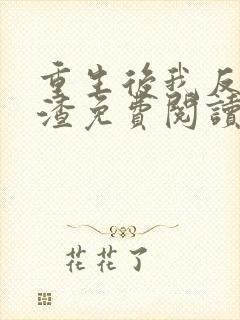 重生後我反
渣免費閱讀
花花了